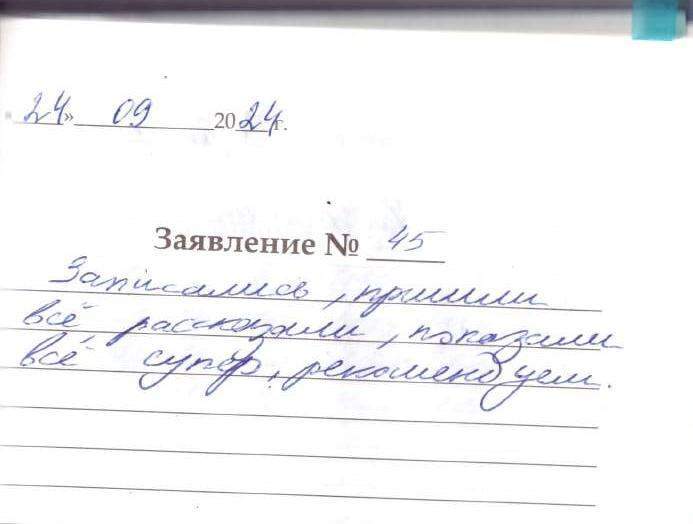 «24» 09 2024 г.
Заявление № 45
Записались, пришли
всё рассказали, показали
всё супер, рекомендуем.